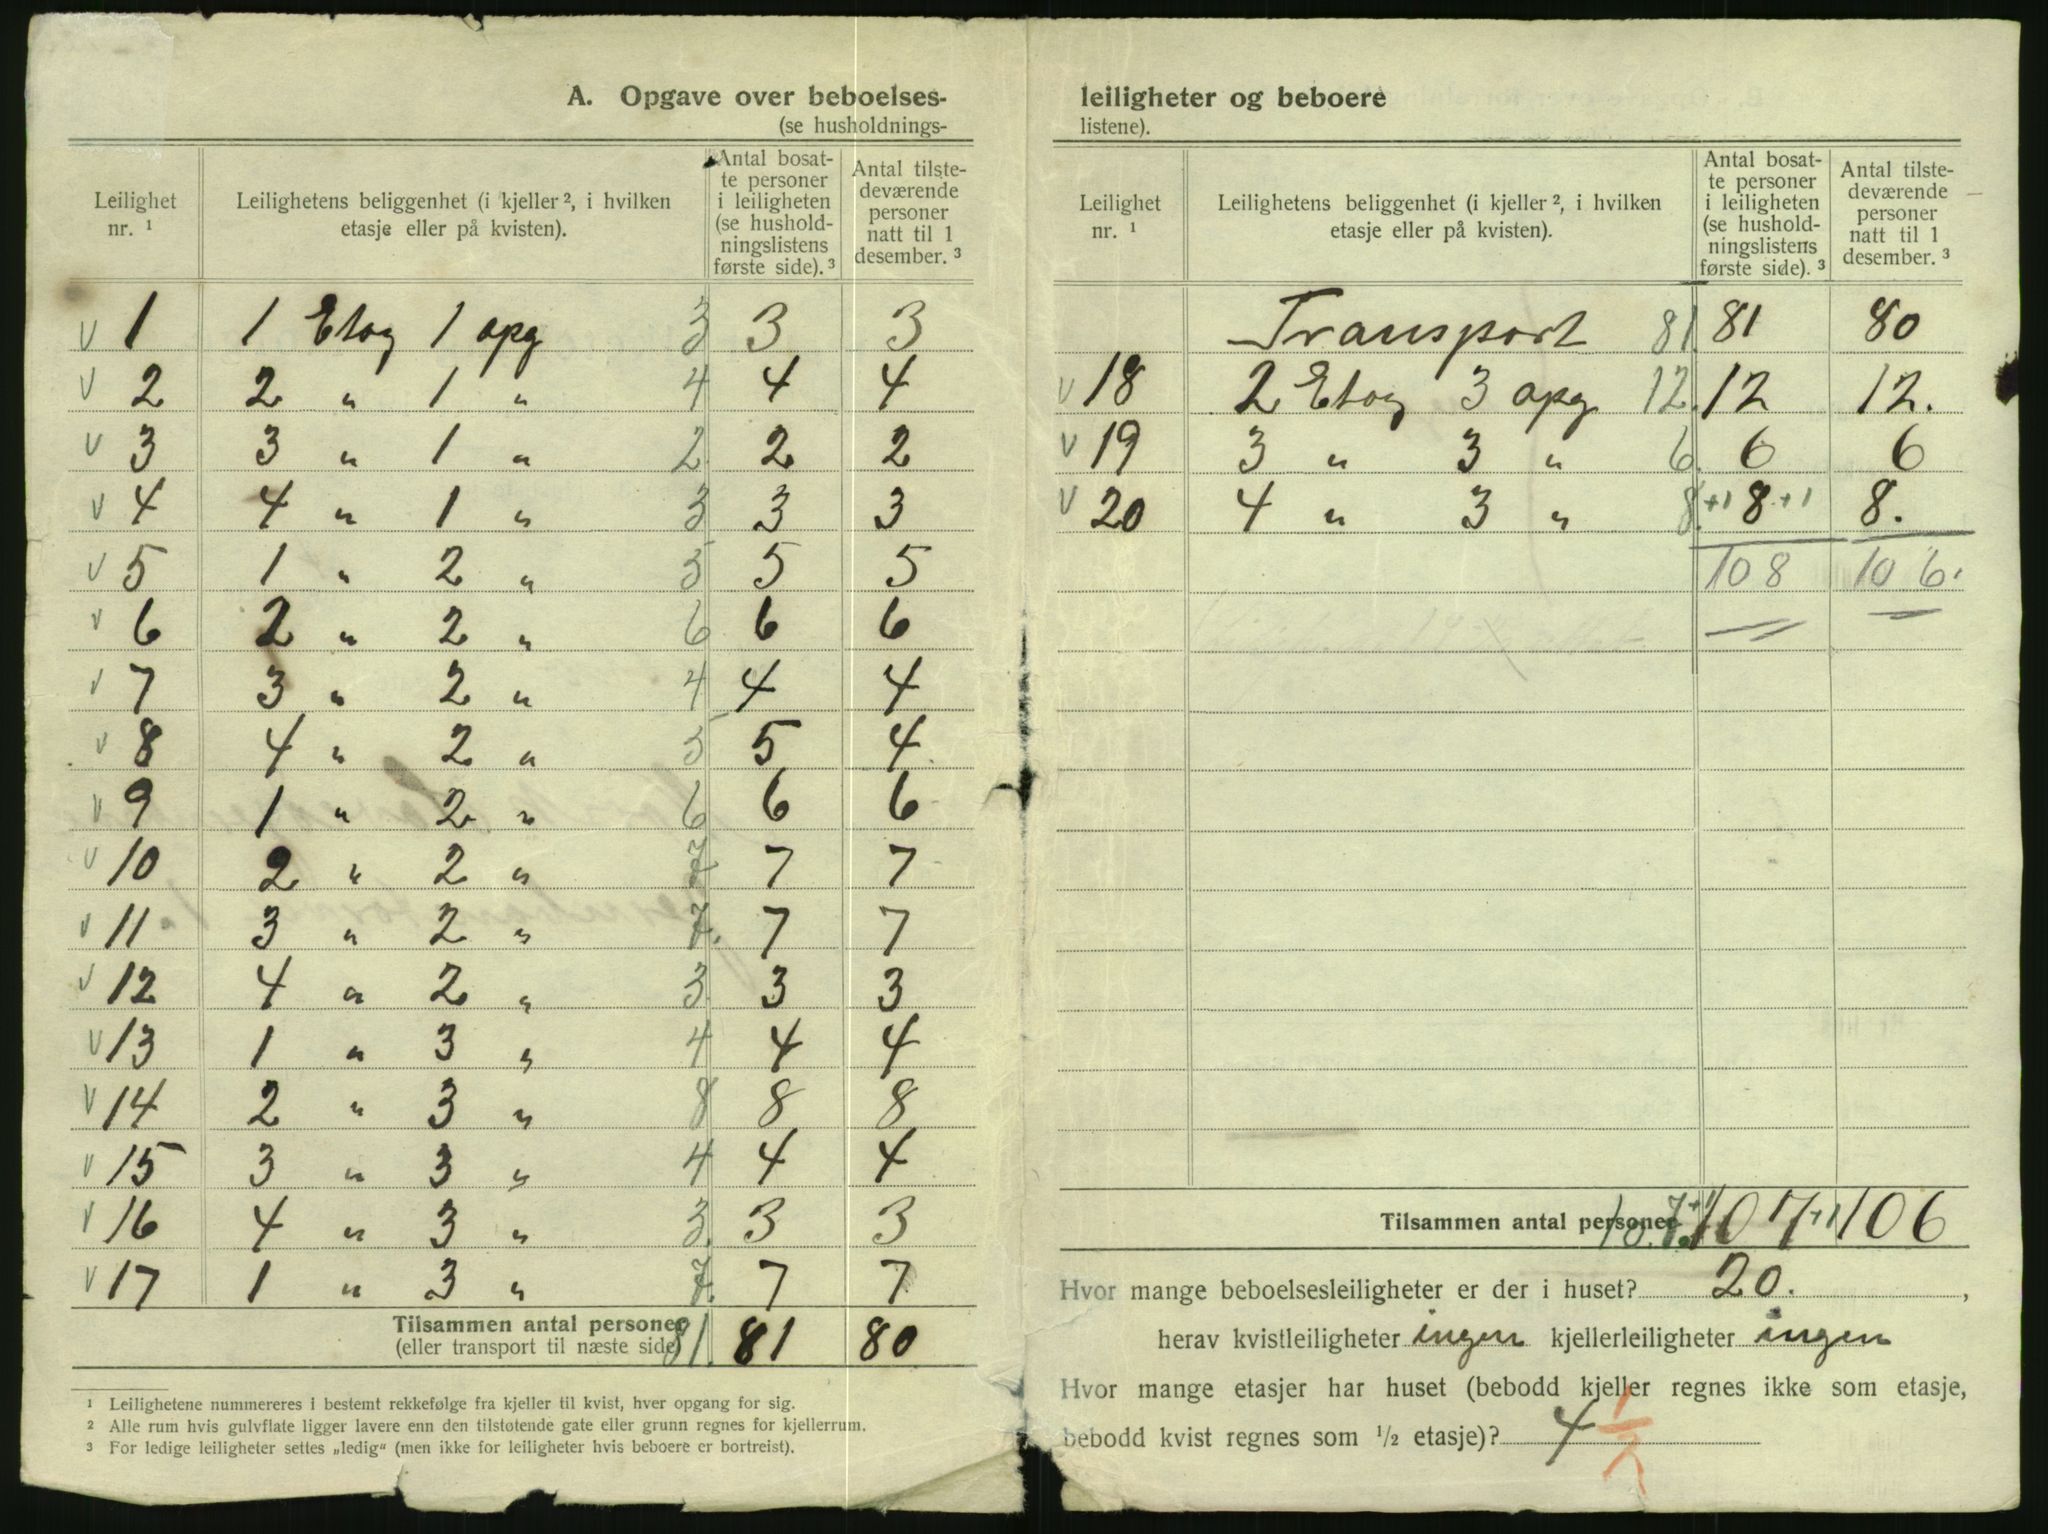 A. Opgave over beboelses-
(se husholdnings-
Leilighet nr. ¹ | Leilighetens beliggenhet (i kjeller ², i hvilken etasje eller på kvisten). | Antal bosatte personer i leiligheten (se husholdningslistens første side). ³ | Antal tilstedeværende personer natt til 1 desember. ³
v 1 1 Etag 1 opg 3 3 3
v 2 2 " 1 " 4 4 4
v 3 3 " 1 " 2 2 2
v 4 4 " 1 " 3 3 3
v 5 1 " 2 " 5 5 5
v 6 2 " 2 " 6 6 6
v 7 3 " 2 " 4 4 4
v 8 4 " 2 " 5 5 4
v 9 1 " 2 " 6 6 6
v 10 2 " 2 " 7 7 7
v 11 3 " 2 " 7. 7 7
v 12 4 " 2 " 3 3 3
v 13 1 " 3 " 4 4 4
v 14 2 " 3 " 8 8 8
v 15 3 " 3 " 4 4 4
v 16 4 " 3 " 3. 3 3
v 17 1 " 3 " 7. 7 7
Tilsammen antal personer 81. 81 80
(eller transport til næste side)
¹ Leilighetene nummereres i bestemt rekkefølge fra kjeller til kvist, hver opgang for sig.
² Alle rum hvis gulvflate ligger lavere enn den tilstøtende gate eller grunn regnes for kjellerrum.
³ For ledige leiligheter settes „ledig" (men ikke for leiligheter hvis beboere er bortreist).
leiligheter og beboere
listene).
Leilighet nr. ¹ | Leilighetens beliggenhet (i kjeller ², i hvilken etasje eller på kvisten). | Antal bosatte personer i leiligheten (se husholdningslistens første side). ³ | Antal tilstedeværende personer natt til 1 desember. ³
Transport 81. 81 80
v 18 2 Etag 3 opg 12. 12 12.
v 19 3 " 3 " 6. 6 6
v 20 4 " 3 " 8. +1 8 +1 8.
108 106.
Tilsammen antal personer 107. +1 107 +1 106
Hvor mange beboelsesleiligheter er der i huset? 20. ,
herav kvistleiligheter ingen kjellerleiligheter ingen
Hvor mange etasjer har huset (bebodd kjeller regnes ikke som etasje,
bebodd kvist regnes som ½ etasje)? 4 1/2